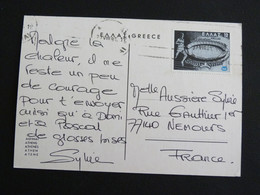 GREECE
ΕΛΛΑΣ
Malgré la
chaleur, il me
reste un peu
de courage
pour t'envoyer
ainsi qu'à Dom
et à Pascal
de grosses bises
Sylvie
Melle Aussière Sylvie
Rue Gauthier 1er
77140 NEMOURS
France